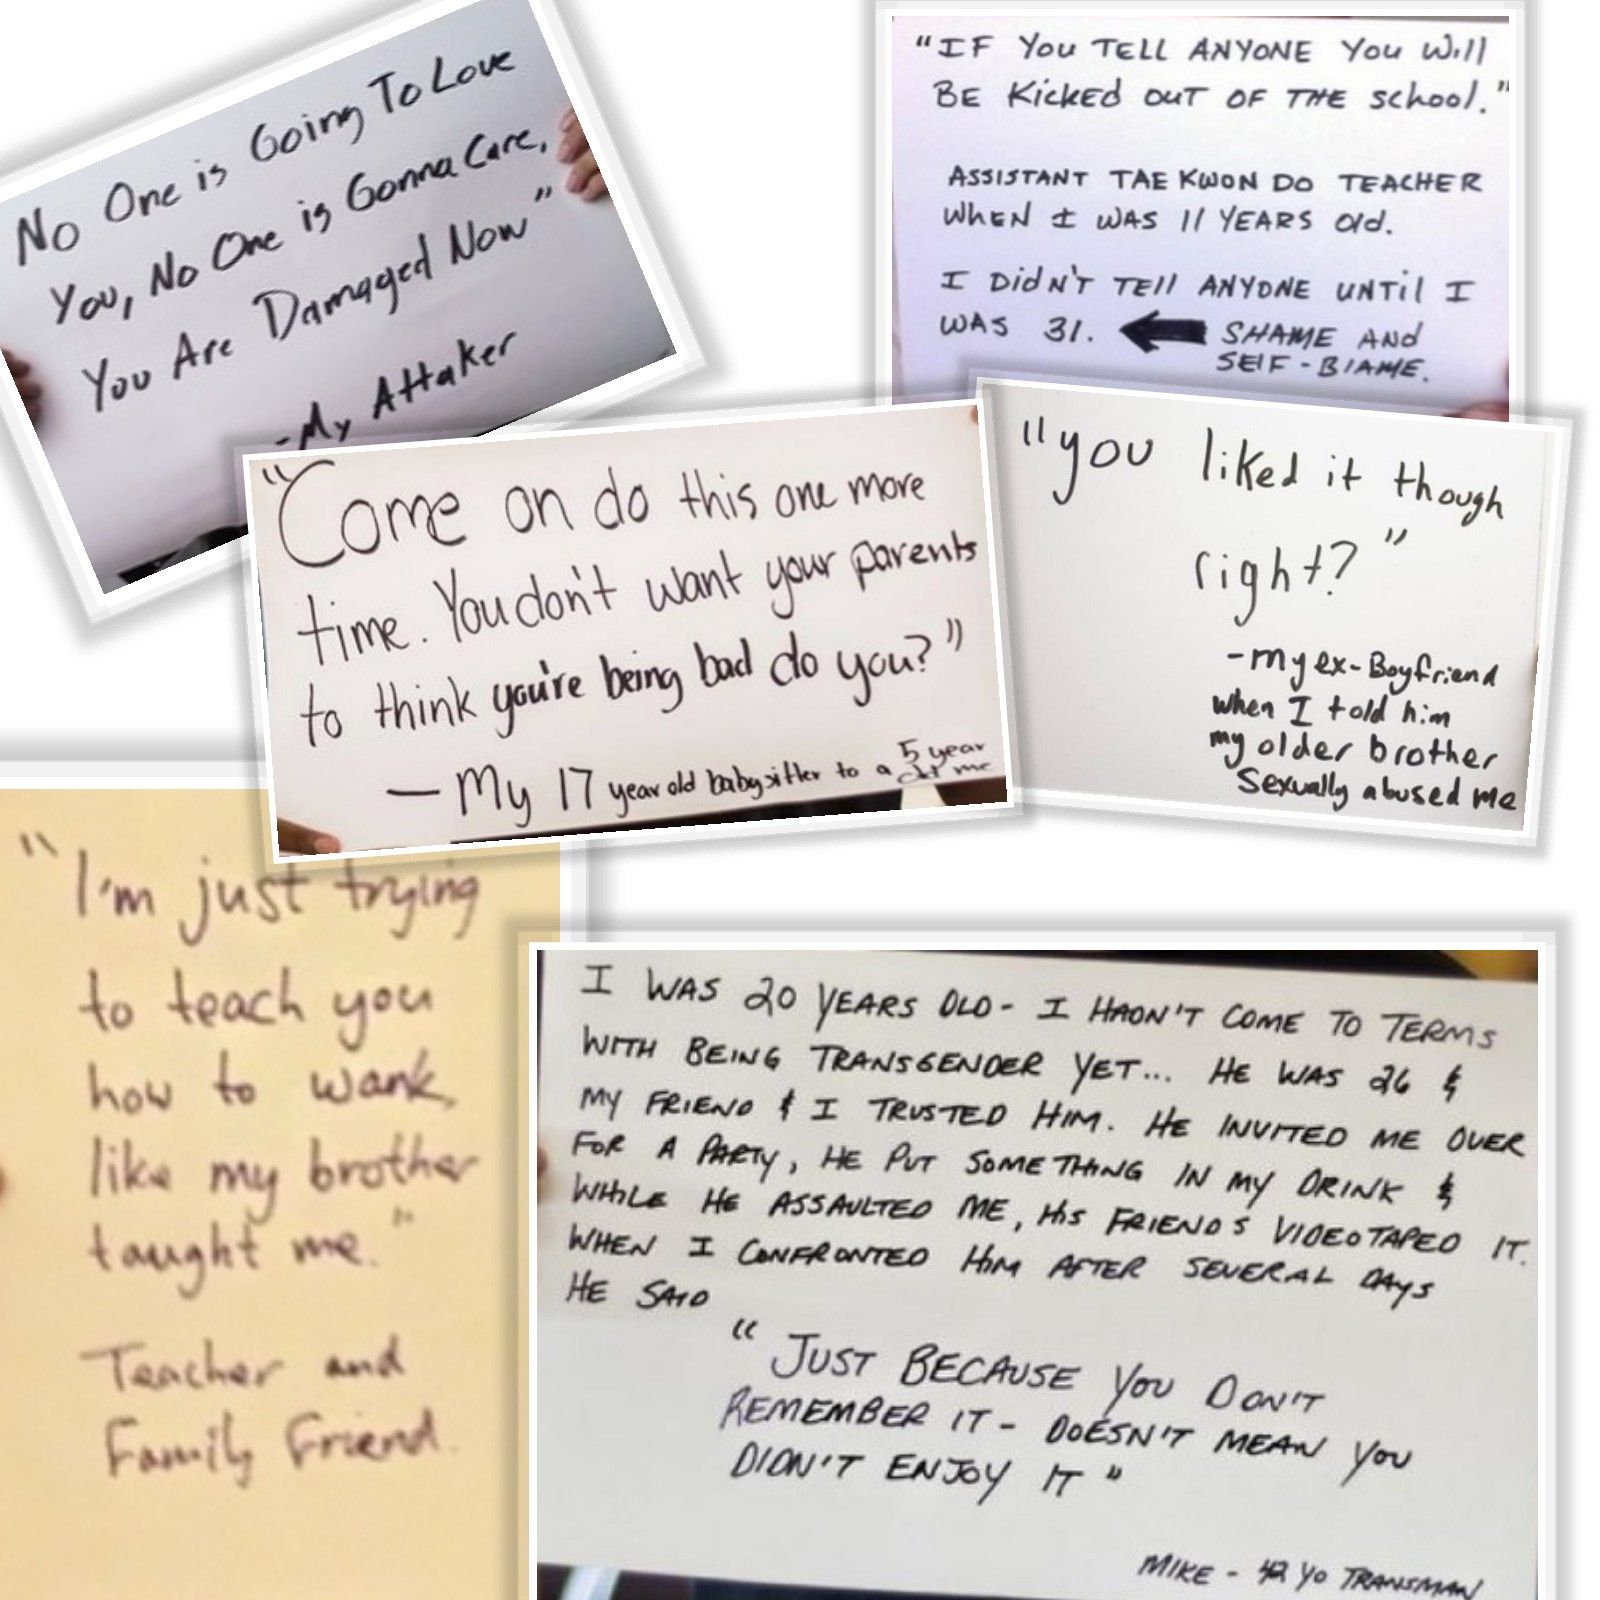 No One is Going To Love
You, No One is Gonna Care,
You Are Damaged Now"
-My Attaker
"IF YOU TELL ANYONE YOU Will
BE Kicked OUT OF THE School."
ASSISTANT TAE KWON DO TEACHER
WHEN I WAS 11 YEARS Old.
I DiDN'T TEll ANYONE UNTil I
WAS 31. SHAME AND
SElF-BlAME.
"Come on do this one more
time. You don't want your parents
to think you're being bad do you?"
— My 17 year old babysitter to a 5 year
old me
"you liked it though
right?"
-my ex-Boyfriend
when I told him
my older brother
sexually abused me
"I'm just trying
to teach you
how to wank,
like my brother
taught me."
Teacher and
Family Friend.
I WAS 20 YEARS OLD- I HADN'T COME TO TERMS
WITH BEING TRANSGENDER YET... HE WAS 26 &
MY FRIEND & I TRUSTED HIM. HE INVITED ME OVER
FOR A PARTY, HE PUT SOMETHING IN MY DRINK &
WHILE HE ASSAULTED ME, HIS FRIENDS VIDEOTAPED IT.
WHEN I CONFRONTED HIM AFTER SEVERAL DAYS
HE SAID
"JUST BECAUSE YOU DON'T
REMEMBER IT- DOESN'T MEAN YOU
DIDN'T ENJOY IT"
MIKE - 42 YO TRANSMAN